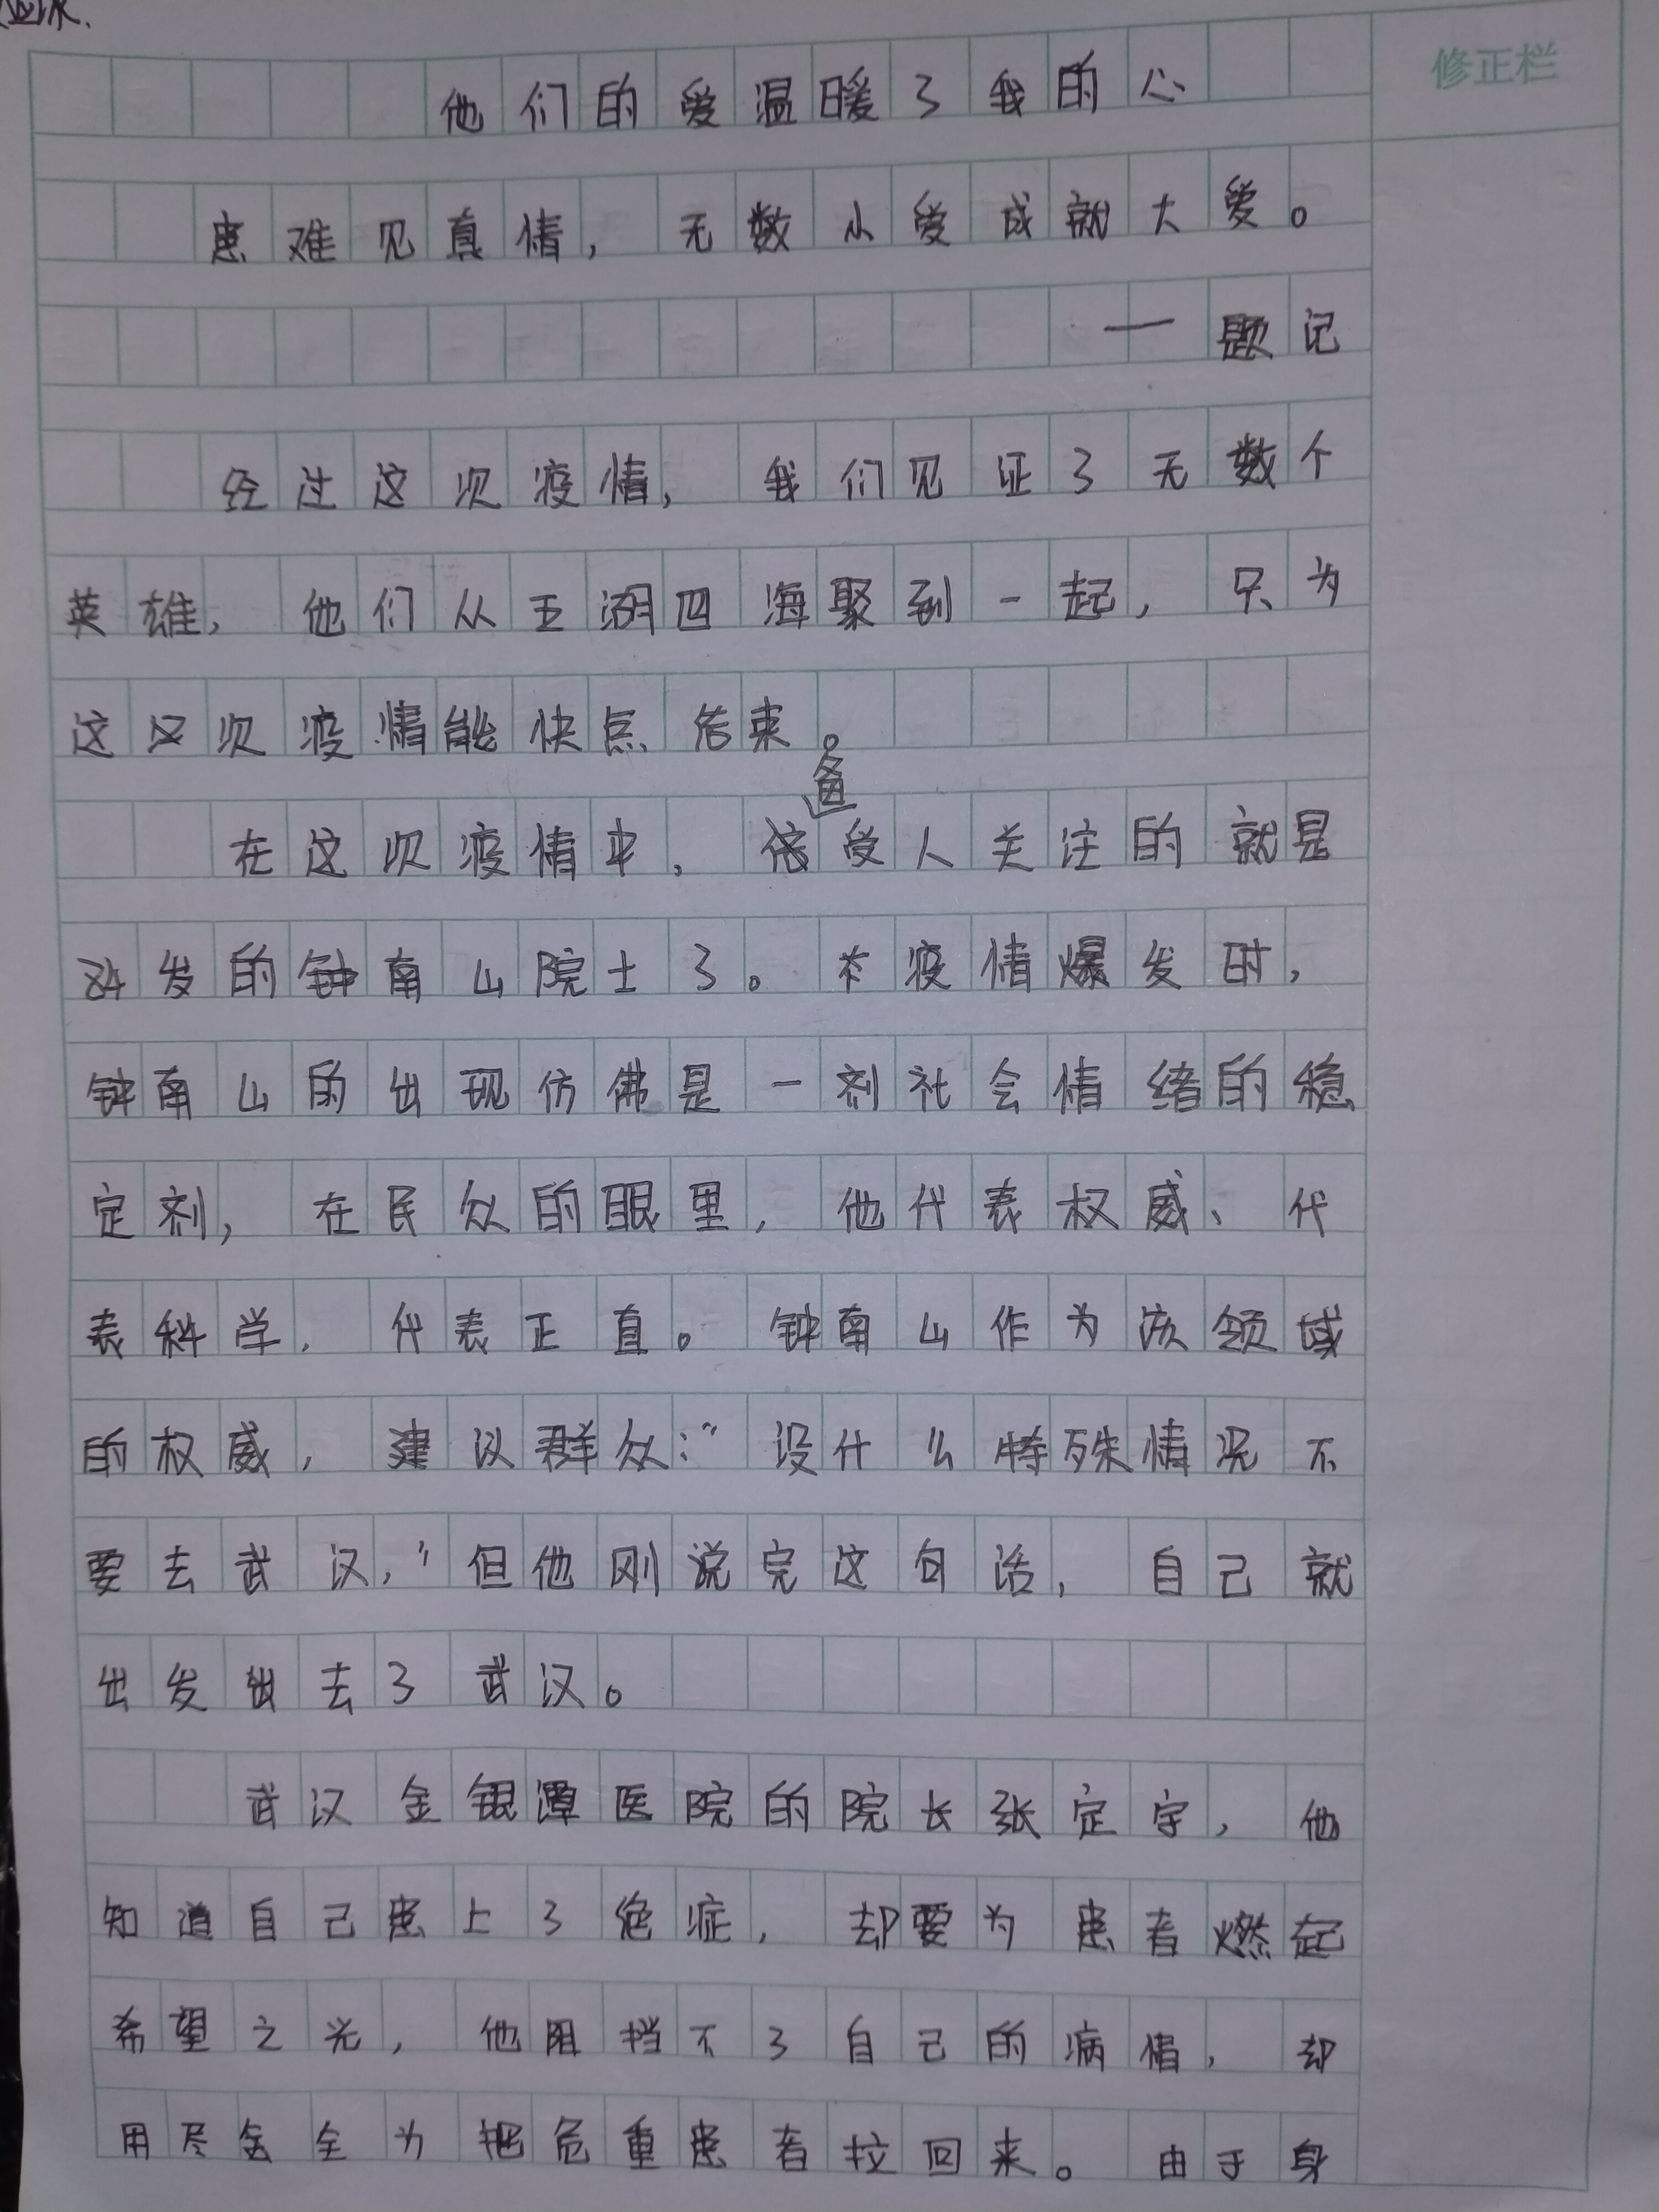 他们的爱温暖了我的心
修正栏
患难见真情，无数小爱成就大爱。
——题记
经过这次疫情，我们见证了无数个
英雄，他们从五湖四海聚到一起，只为
这次疫情能快点结束。
在这次疫情中，备受人关注的就是
84岁的钟南山院士了。在疫情爆发时，
钟南山的出现仿佛是一剂社会情绪的稳
定剂，在民众的眼里，他代表权威、代
表科学，代表正直。钟南山作为该领域
的权威，建议群众：“没什么特殊情况不
要去武汉，”但他刚说完这句话，自己就
出发去了武汉。
武汉金银潭医院的院长张定宇，他
知道自己患上了绝症，却要为患者燃起
希望之光，他阻挡不了自己的病情，却
用尽全力把危重患者拉回来。由于身